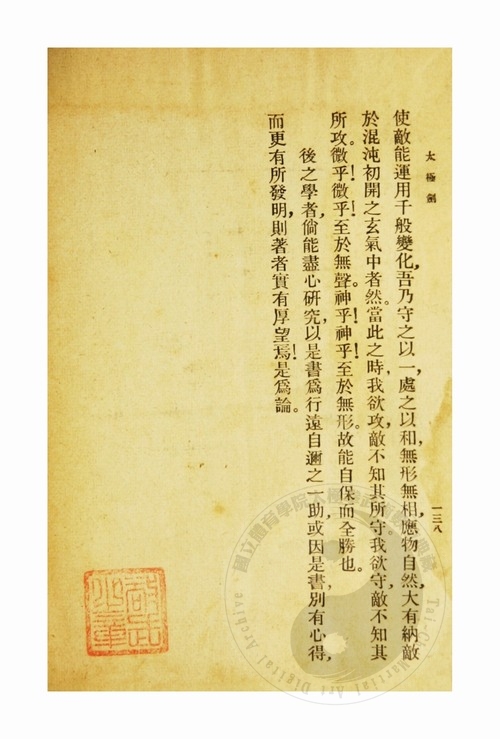 太極劍
一三八
使敵能運用千般變化，吾乃守之以一，處之以和，無形無相，應物自然，大有納敵
於混沌初開之玄氣中者然。當此之時，我欲攻，敵不知其所守，我欲守，敵不知其
所攻。微乎！微乎！至於無聲。神乎！神乎！至於無形。故能自保而全勝也。
後之學者，倘能盡心研究，以是書爲行遠自邇之一助，或因是書，別有心得，
而更有所發明，則著者實有厚望焉！是爲論。
Tai-Chi Martial Art Digital Archive